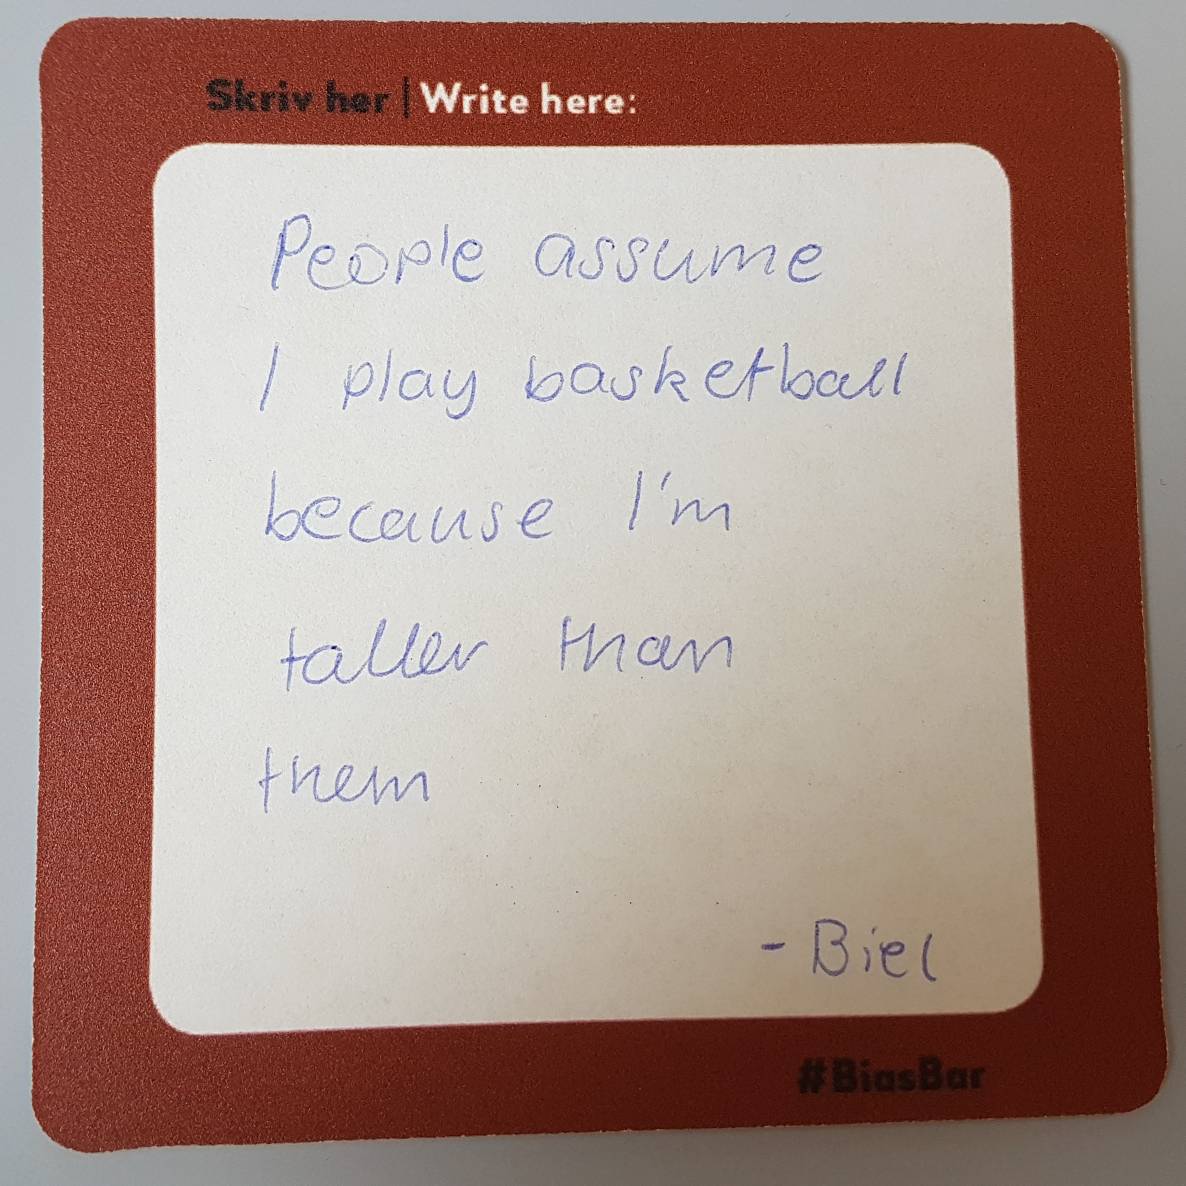 Skriv her | Write here:
People assume
I play basketball
because I'm
taller than
them
- Biel
#BiasBar